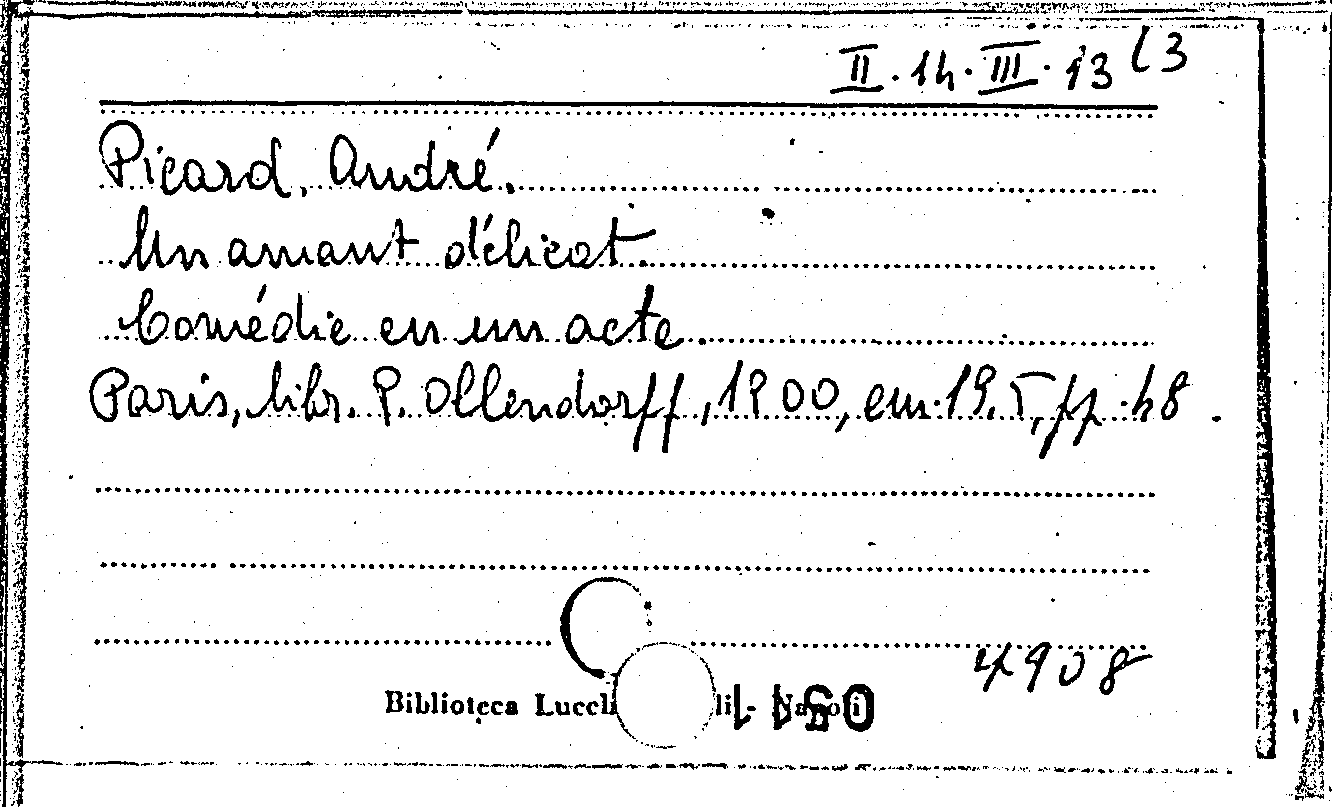 II. 14. III. 13 (3
Picard, André.
Un amant délicat.
Comédie en un acte.
Paris, libr. P. Ollendorff, 1900, cm. 19.5, pp. 48.
4908
Biblioteca Lucch li - Napoli